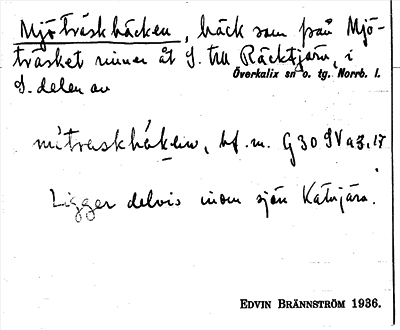 Mjöträskbäcken, bäck som från Mjö-
träsket rinner åt S. till Räcktjärn, i
S. delen av Överkalix sn o. tg. Norrb. l.
mitraskbäken, bf. m. G 30 SV a 3, 17
Ligger delvis inom sjön
EDVIN BRÄNNSTRÖM 1936.